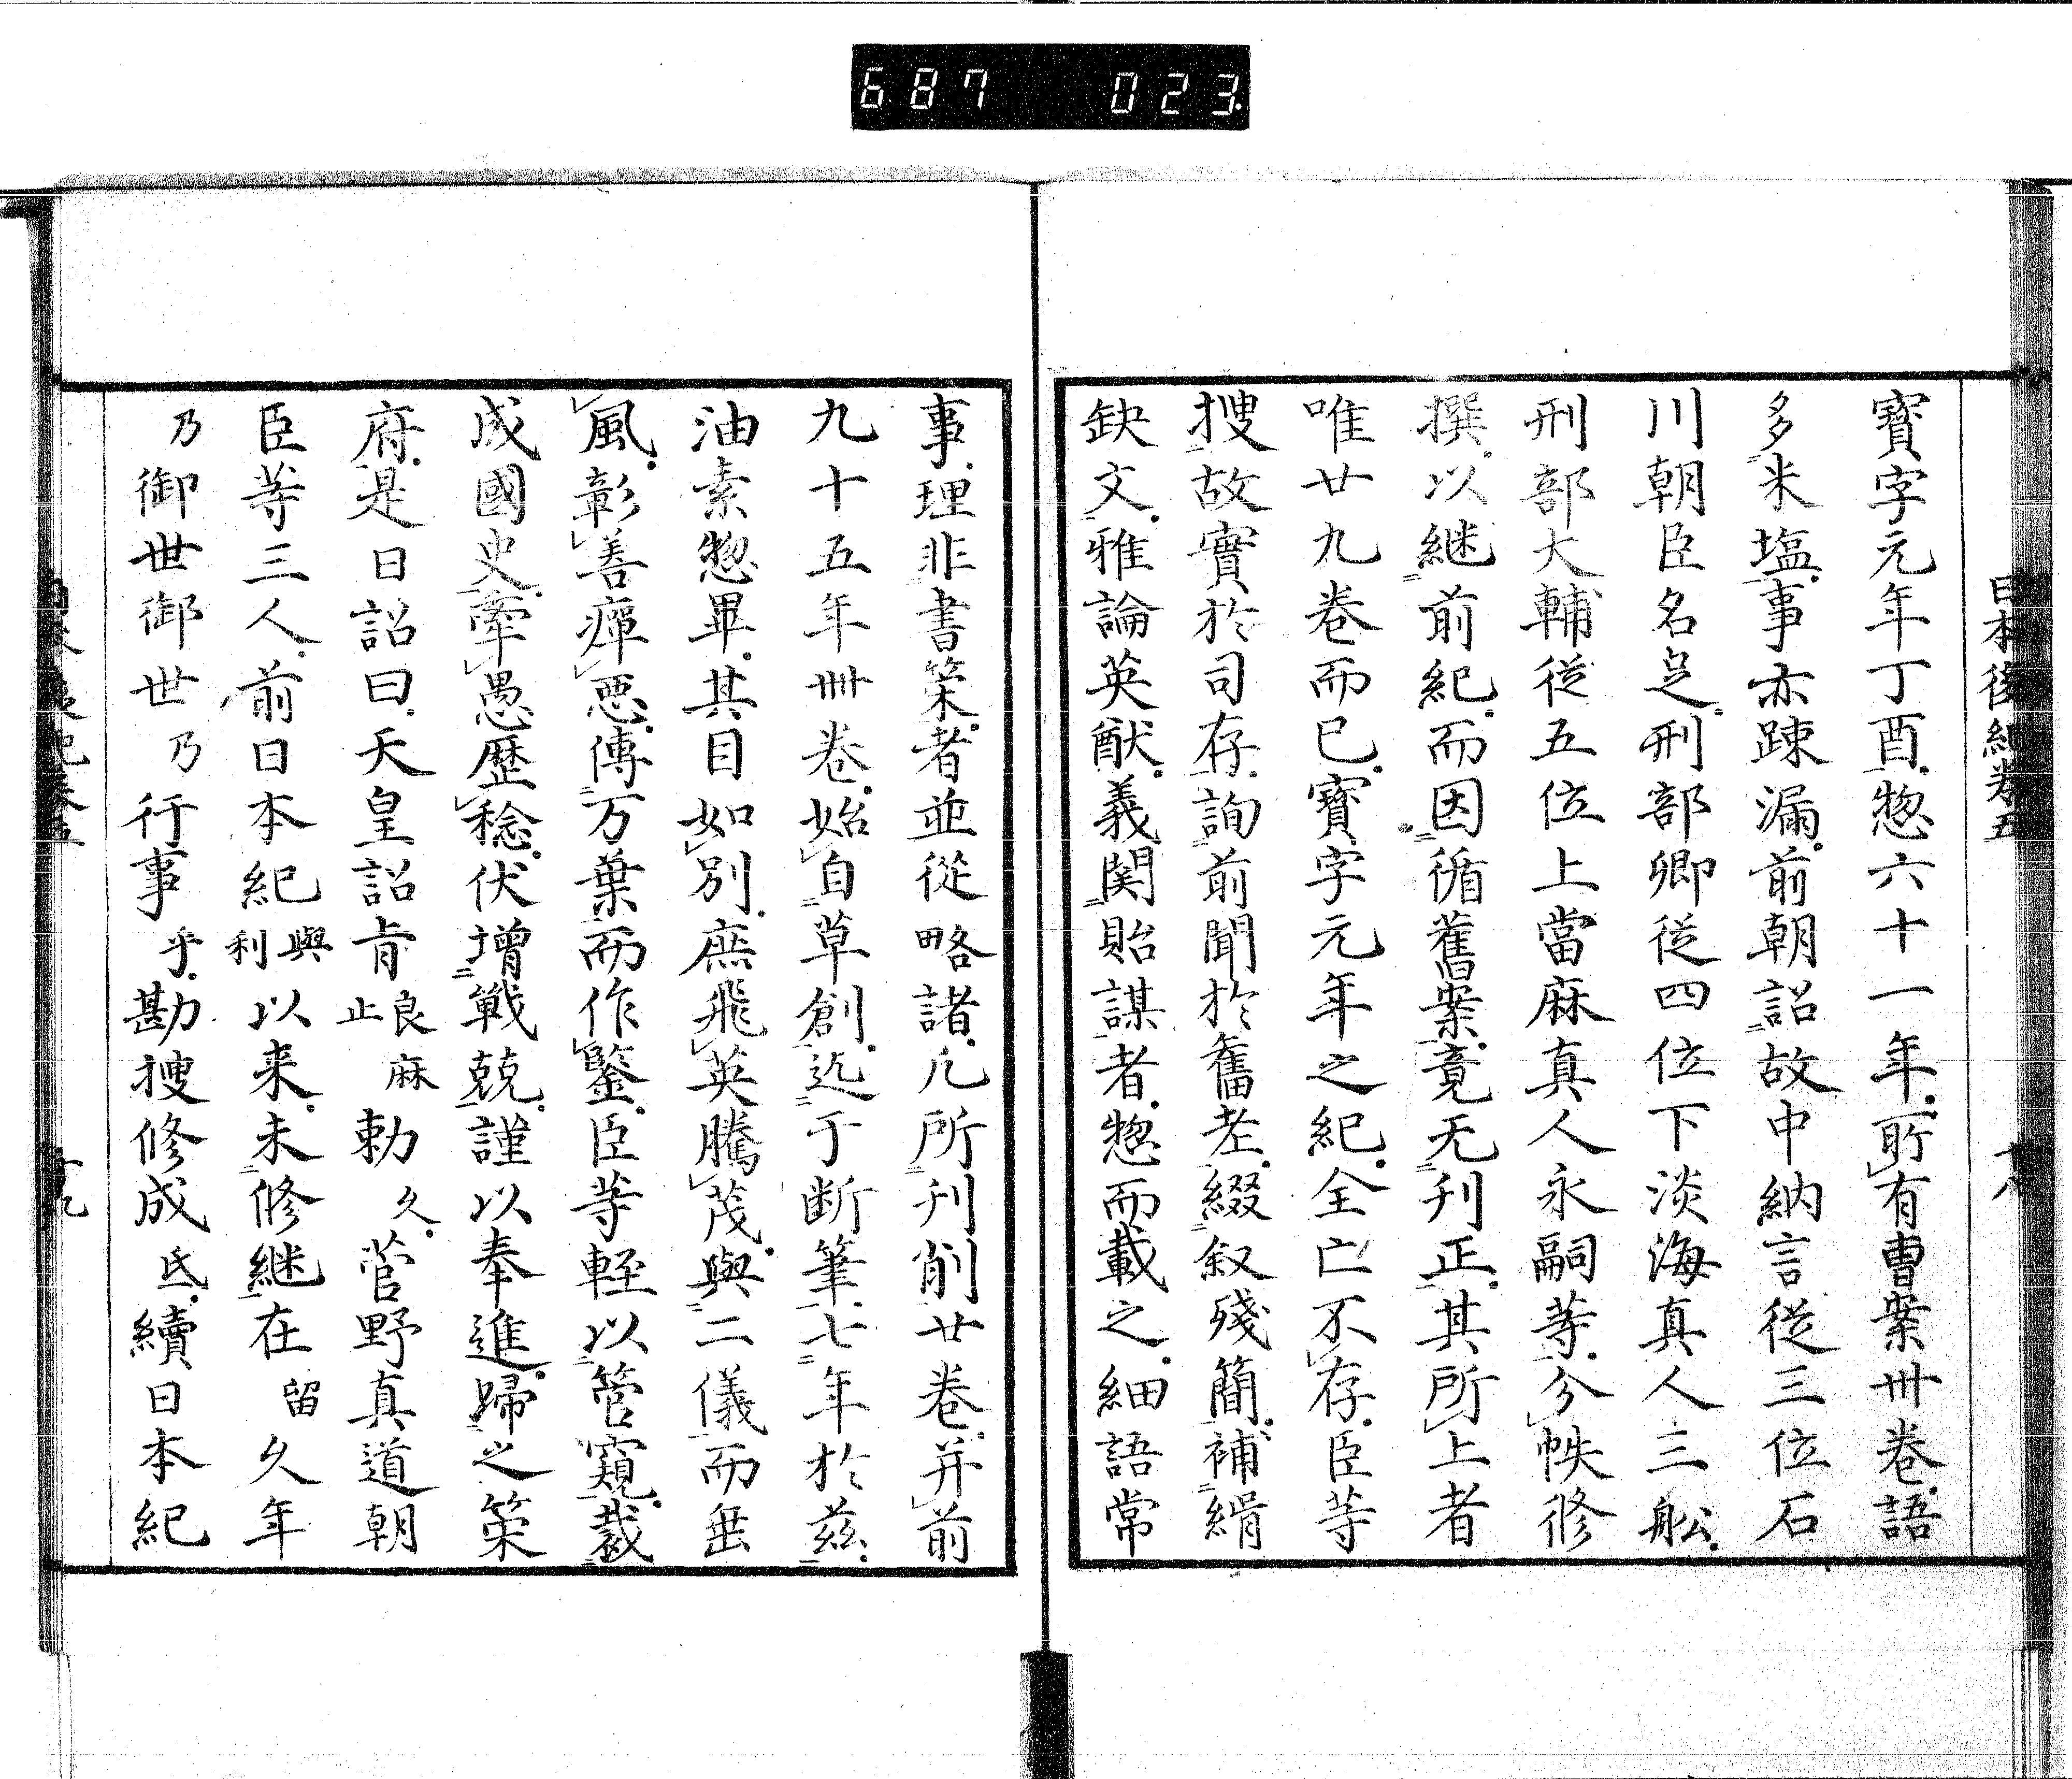 687 023
日本後紀卷五 十八
寳字元年丁酉惣六十一年所有曺案卅卷語
多米塩事亦踈漏前朝詔故中納言從三位石
川朝臣名足刑部卿從四位下淡海真人三舩
刑部大輔從五位上當麻真人永嗣等分帙修
撰以継前紀而因循舊案竟无刊正其所上者
唯廿九卷而已寳字元年之紀全亡不存臣等
搜故實於司存詢前聞於舊老綴叙殘簡補緝
缺文雅論英猷義関貽謀者惣而載之細語常
事理非書策者並從略諸凡所刊削廿卷并前
九十五年卌卷始自草創迄于断筆七年於茲
油素惣畢其目如別庶飛英騰茂與二儀而垂
風彰善癉惡傳万葉而作鑒臣等輊以管窺裁
成國史牽愚歴稔伏增戰兢謹以奉進歸之策
府是日詔曰天皇詔㫖良麻止勅久菅野真道朝
臣等三人前日本紀與利以来未修継在留久年
乃御世御世乃行事乎勘搜修成氐續日本紀
十九